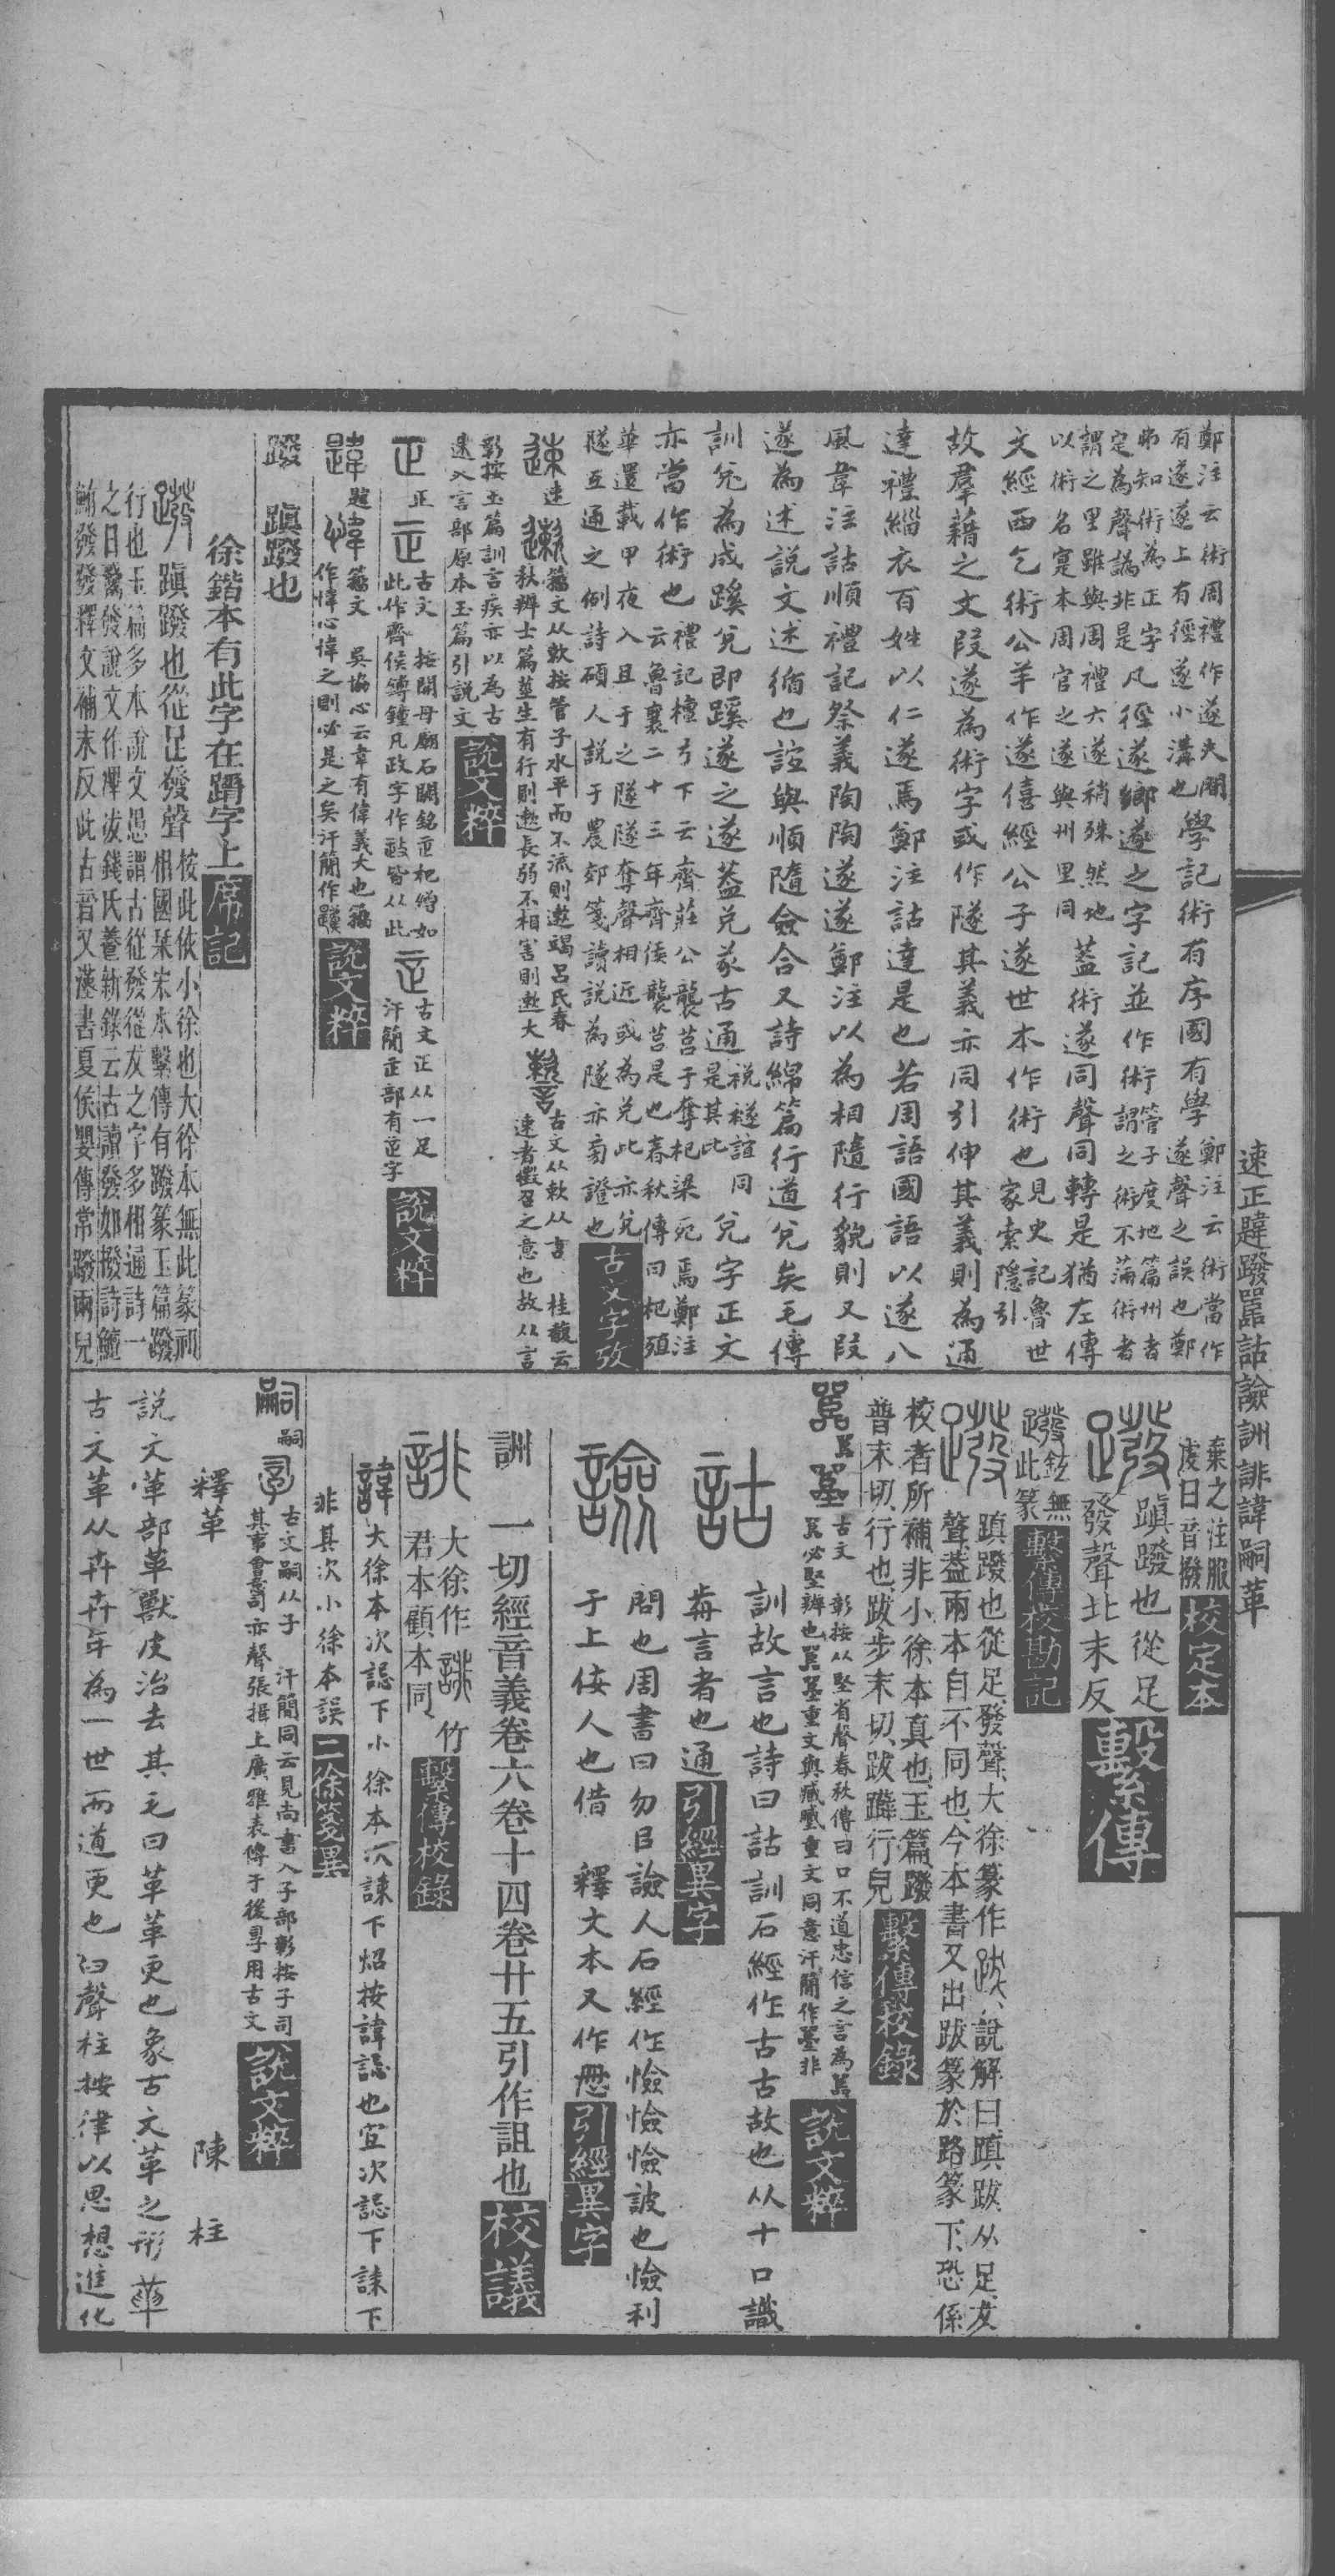 速正韙蹳嚚詁譣詶誹諱嗣革
鄭注云術周禮作遂夫間
有遂遂上有徑遂小溝也
學記術有序國有學
鄭注云術當作
遂聲之誤也鄭
弗知術為正字凡徑遂鄉遂之字記並作術
定為聲譌非是
管子度地篇州者
謂之術不滿術者
謂之里雖與周禮六遂稍殊然地
以術名寔本周官之遂與州里同
蓋術遂同聲同轉是猶左傳
文經西乞術公羊作遂僖經公子遂世本作術也
見史記魯世
家索隱引
故羣藉之文叚遂為術字或作隧其義亦同引伸其義則為通
達禮緇衣百姓以仁遂焉鄭注詁達是也若周語國語以遂八
風韋注詁順禮記祭義陶陶遂遂鄭注以為相隨行貌則又叚
遂為述說文述循也誼與順隨僉合又詩綿篇行道兌矣毛傳
訓兌為成蹊兌即蹊遂之遂葢兌㒸古通
祱禭誼同
是其此
兌字正文
亦當作術也
禮記檀弓下云齊莊公襲莒于奪杞梁死焉鄭注
云魯襄二十三年齊侯襲莒是也春秋傳曰杞殖
華還載甲夜入且于之隧隧奪聲相近或為兌此亦兌
隧互通之例詩碩人說于農郊箋讀說為隧亦兩證也
古文字攷
速
速
籀文从欶按管子水平而不流則遬竭呂氏春
秋辨士篇莖生有行則遬長弱不相害則遬大
古文从欶从言
桂馥云
速者徵召之意也故从言
彰按玉篇訓言疾亦以為古
速入言部原本玉篇引說文
說文粹
正
正
古文
按開母廟石闕銘𤴓杞繒如
此作齊侯鎛鐘凡政字作𢻫皆从此
古文正从一足
汗簡𤴓部有𤴓字
說文粹
韙
韙
籀文
吳協心云韋有偉義大也籀
作愇心愇之則必是之矣汗簡作
說文粹
蹳
蹎蹳也
徐鍇本有此字在蹎字上
席記
蹎蹳也從足發聲
按此依小徐也大徐本無此篆祁
相國栞宋本繫傳有蹳篆玉篇蹳
行也玉篇多本說文愚謂古從發從犮之字多相通詩一
之日觱發說文作滭冹錢氏養新錄云古讀發如撥詩鱣
鮪發發釋文補末反此古音又漢書夏侯嬰傳常蹳兩兒
棄之注服
虔曰音撥
校定本
蹎蹳也從足
發聲北末反
繫傳
鉉無
此篆
繫傳校勘記
蹎蹳也從足發聲大徐篆作跋說解曰蹎跋从足犮
聲葢兩本自不同也今本書又出跋篆於路篆下恐係
校者所補非小徐本真也玉篇蹳
普末切行也跋步末切跋躠行皃
繫傳校錄
嚚
嚚
古文
彰按从堅省聲春秋傳曰口不道忠信之言為嚚
嚚必堅辨也
重文同意汗簡作非
說文粹
詁
訓故言也詩曰詁訓石經作古古故也从十口識
歬言者也通
引經異字
譣
問也周書曰勿㠯譣人石經作憸憸憸詖也憸利
于上佞人也借
釋文本又作㥘
引經異字
詶
一切經音義卷六卷十四卷廿五引作詛也
校議
誹
大徐作誹竹
君本顧本同
繫傳校錄
諱
大徐本次誋下小徐本次諫下炤按諱誋也宜次誋下諫下
非其次小徐本誤
二徐箋異
嗣
嗣
古文嗣从子
汗簡同云見尚書入子部彰按子司
其事會意司亦聲張揖上廣雅表傳于後孠用古文
說文粹
釋革
陳柱
說文革部革獸皮治去其毛曰革革更也象古文革之形
古文革从卉卉年為一世而道更也臼聲柱按律以思想進化